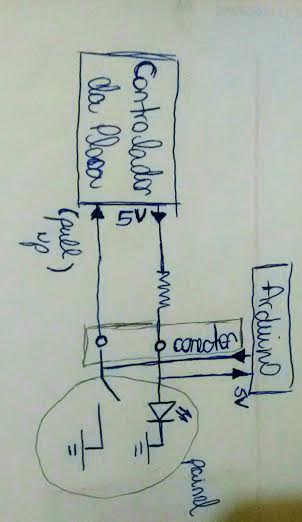 Arduino
5V
conector
painel
Controlador
da Placa
5V
(pull
up)